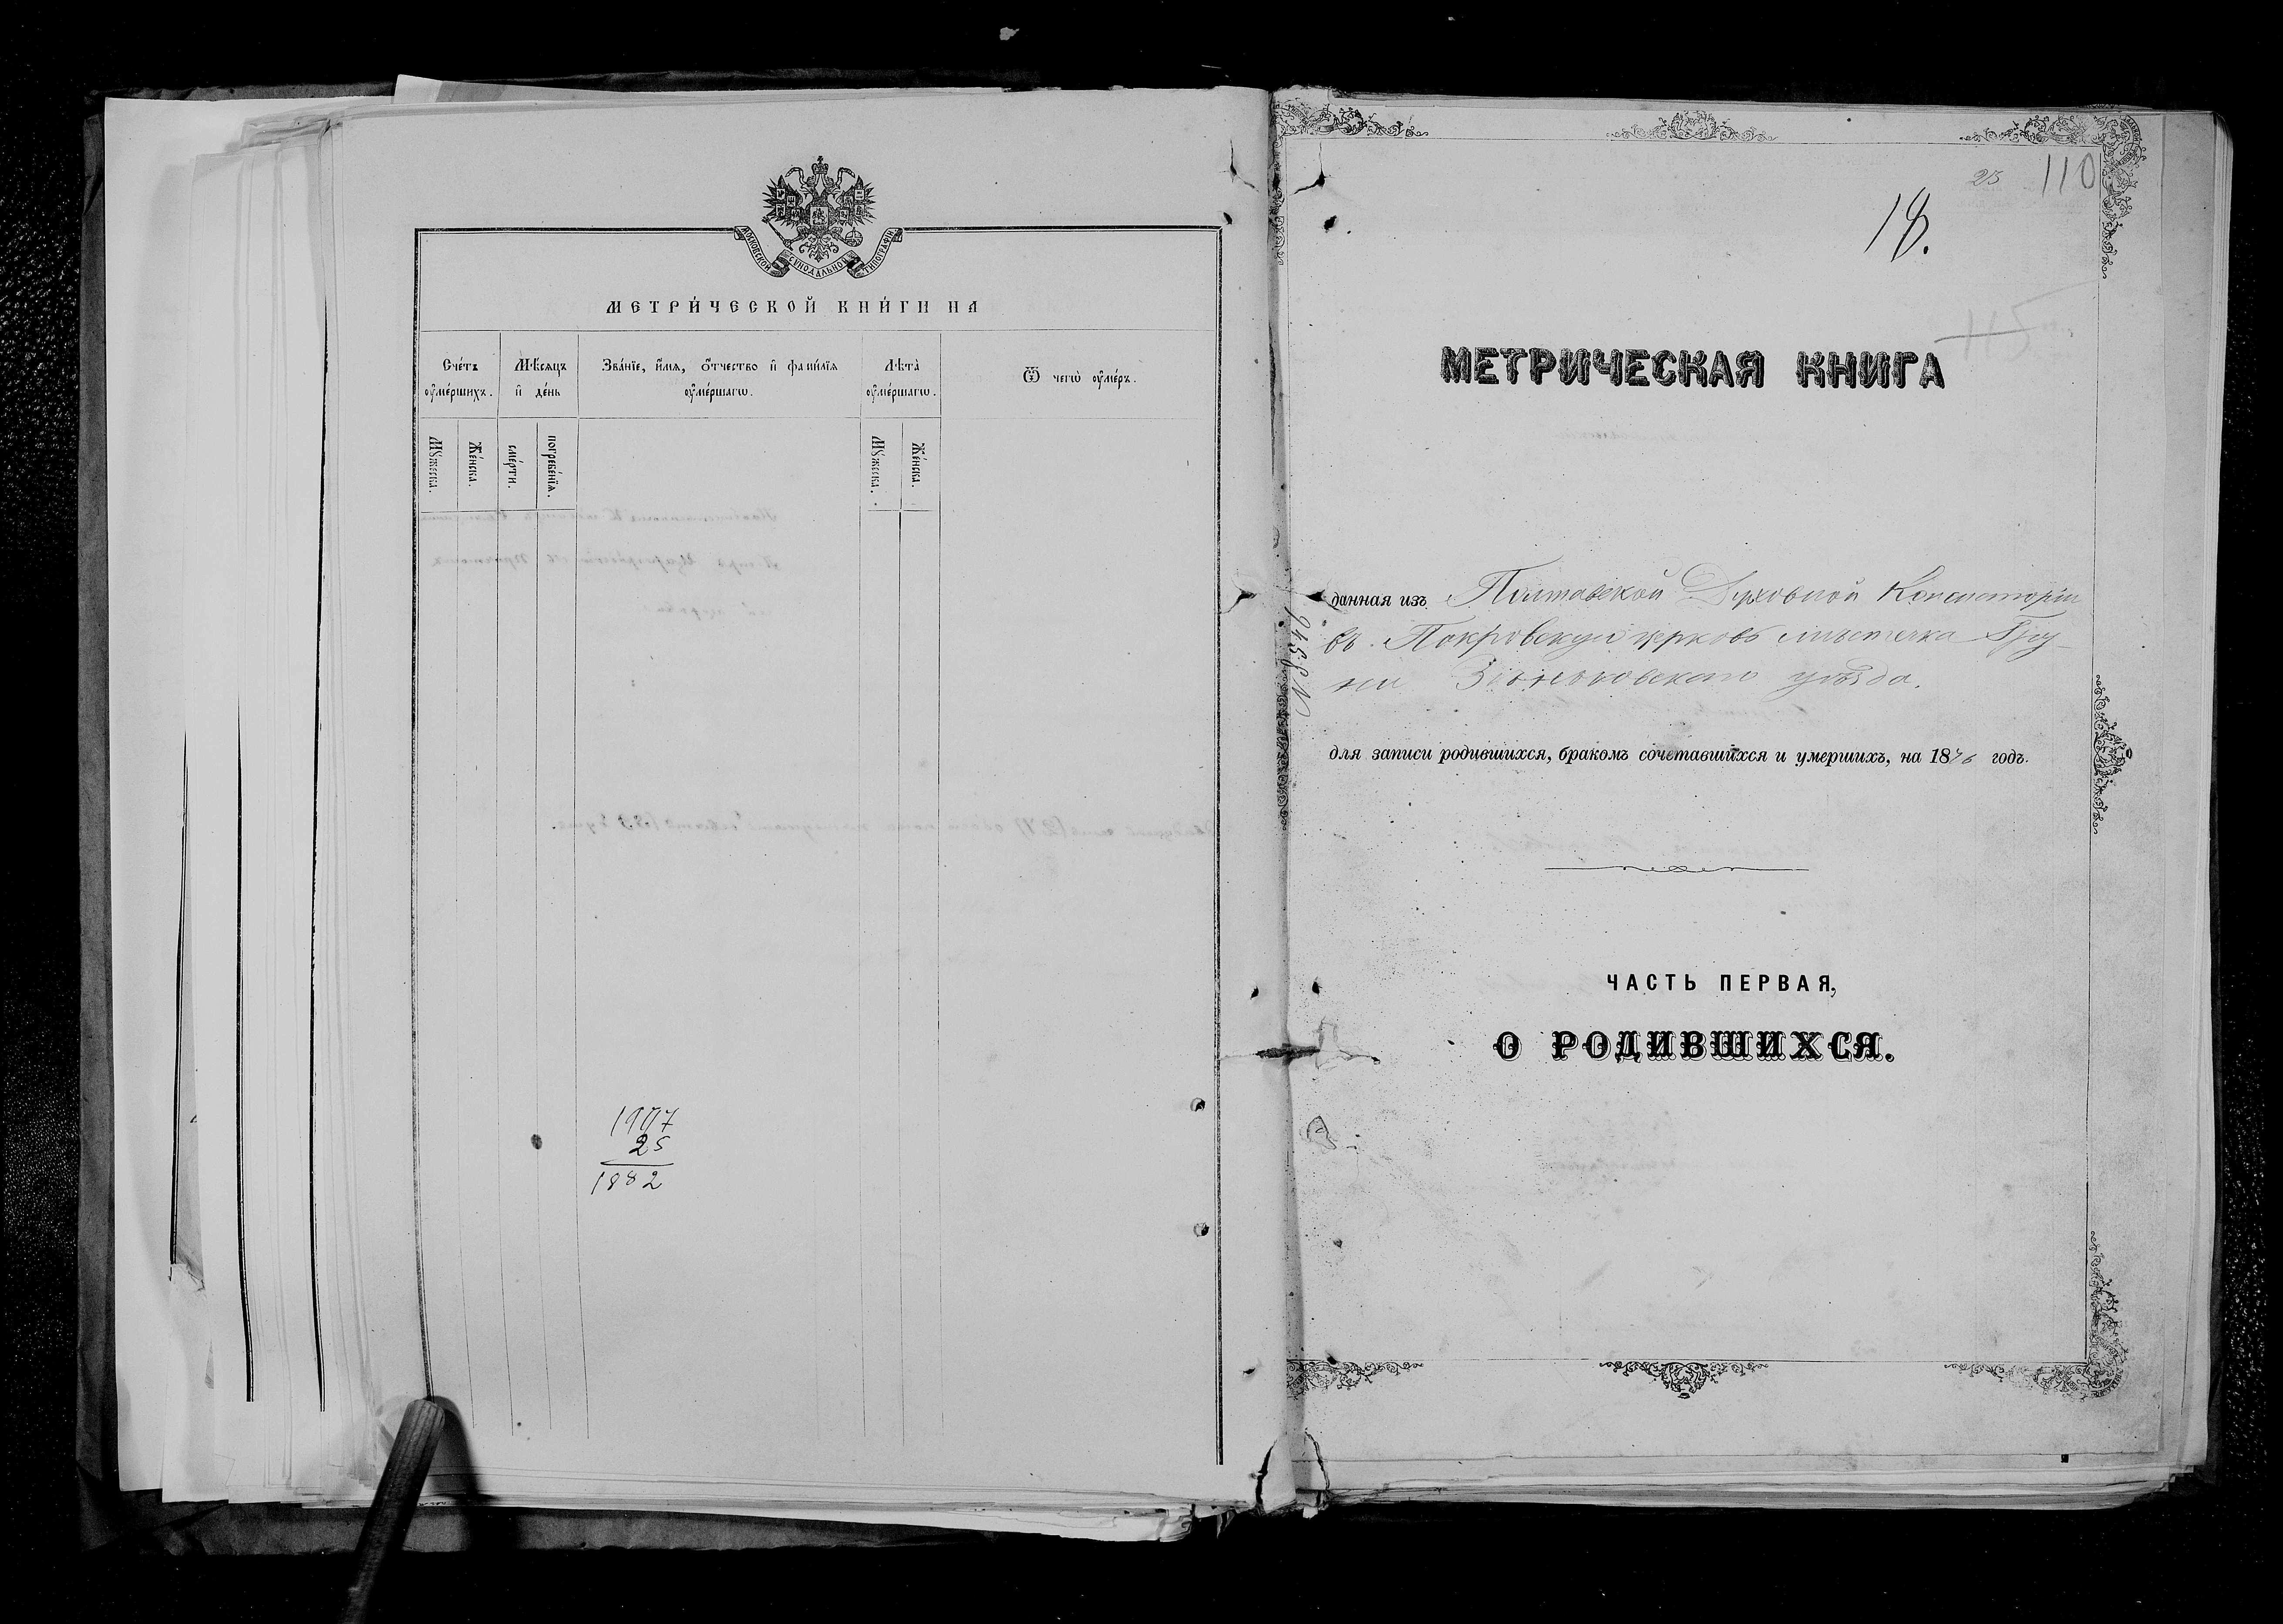 МОСКОВСКОЙ СѴНОДАЛЬНОЙ ТИПОГРАФІИ
МЕТРИ́ЧЕСКОЙ КНИ́ГИ НА
Сче́тъ ᲂу҆ме́ршихъ.
Мѣ́сяцъ и҆ де́нь
Зва́нїе, и҆́мя, ѻ҆́тчество и҆ фами́лїя ᲂу҆ме́ршагѡ.
Лѣ́та ᲂу҆ме́ршагѡ.
Ѿ чегѡ̀ ᲂу҆́меръ.
Мꙋ́жеска.
Же́нска.
сме́рти.
погребе́нїя.
Мꙋ́жеска.
Же́нска.
1907
25
1882
25 110
18.
МЕТРИЧЕСКАЯ КНИГА
данная изъ Полтавской Духовной Консисторіи
въ Покровскую церковь мѣстечка Гру-
ни Зѣньковскаго уѣзда.
для записи родившихся, бракомъ сочетавшихся и умершихъ, на 1876 годъ.
ЧАСТЬ ПЕРВАЯ,
О РОДИВШИХСЯ.